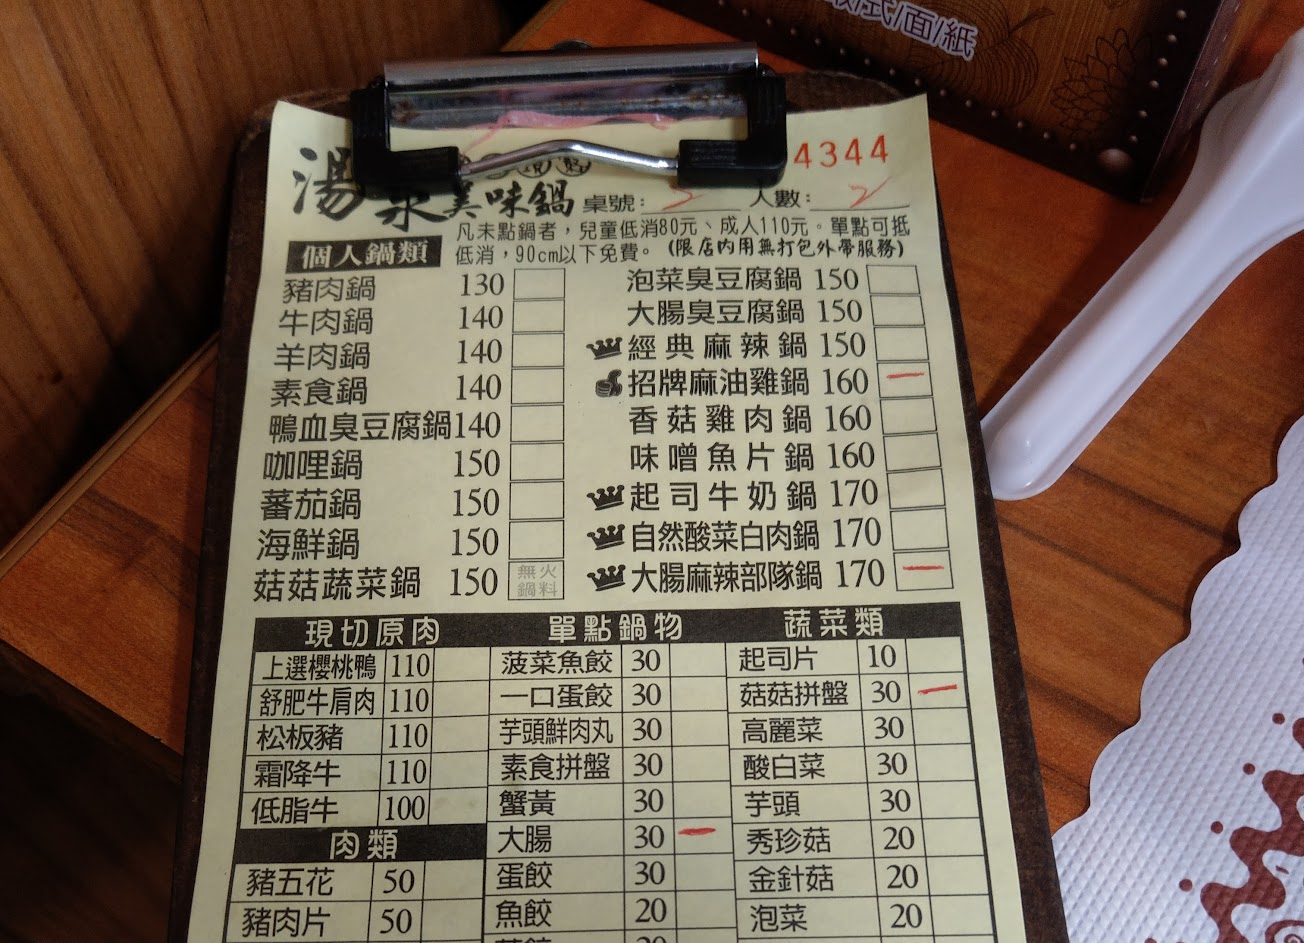 式/面/紙
4344
湯泉美味鍋 桌號: 2 人數: 2
凡未點鍋者，兒童低消80元、成人110元。單點可抵
低消，90cm以下免費。(限店內用無打包外帶服務)
個人鍋類
豬肉鍋 130
牛肉鍋 140
羊肉鍋 140
素食鍋 140
鴨血臭豆腐鍋 140
咖哩鍋 150
蕃茄鍋 150
海鮮鍋 150
菇菇蔬菜鍋 150 無火鍋料
泡菜臭豆腐鍋 150
大腸臭豆腐鍋 150
經典麻辣鍋 150
招牌麻油雞鍋 160 一
香菇雞肉鍋 160
味噌魚片鍋 160
起司牛奶鍋 170
自然酸菜白肉鍋 170
大腸麻辣部隊鍋 170 一
現切原肉
上選櫻桃鴨 110
舒肥牛肩肉 110
松板豬 110
霜降牛 110
低脂牛 100
肉類
豬五花 50
豬肉片 50
單點鍋物
菠菜魚餃 30
一口蛋餃 30
芋頭鮮肉丸 30
素食拼盤 30
蟹黃 30
大腸 30 一
蛋餃 30
魚餃 20
20
蔬菜類
起司片 10
菇菇拼盤 30 一
高麗菜 30
酸白菜 30
芋頭 30
秀珍菇 20
金針菇 20
泡菜 20